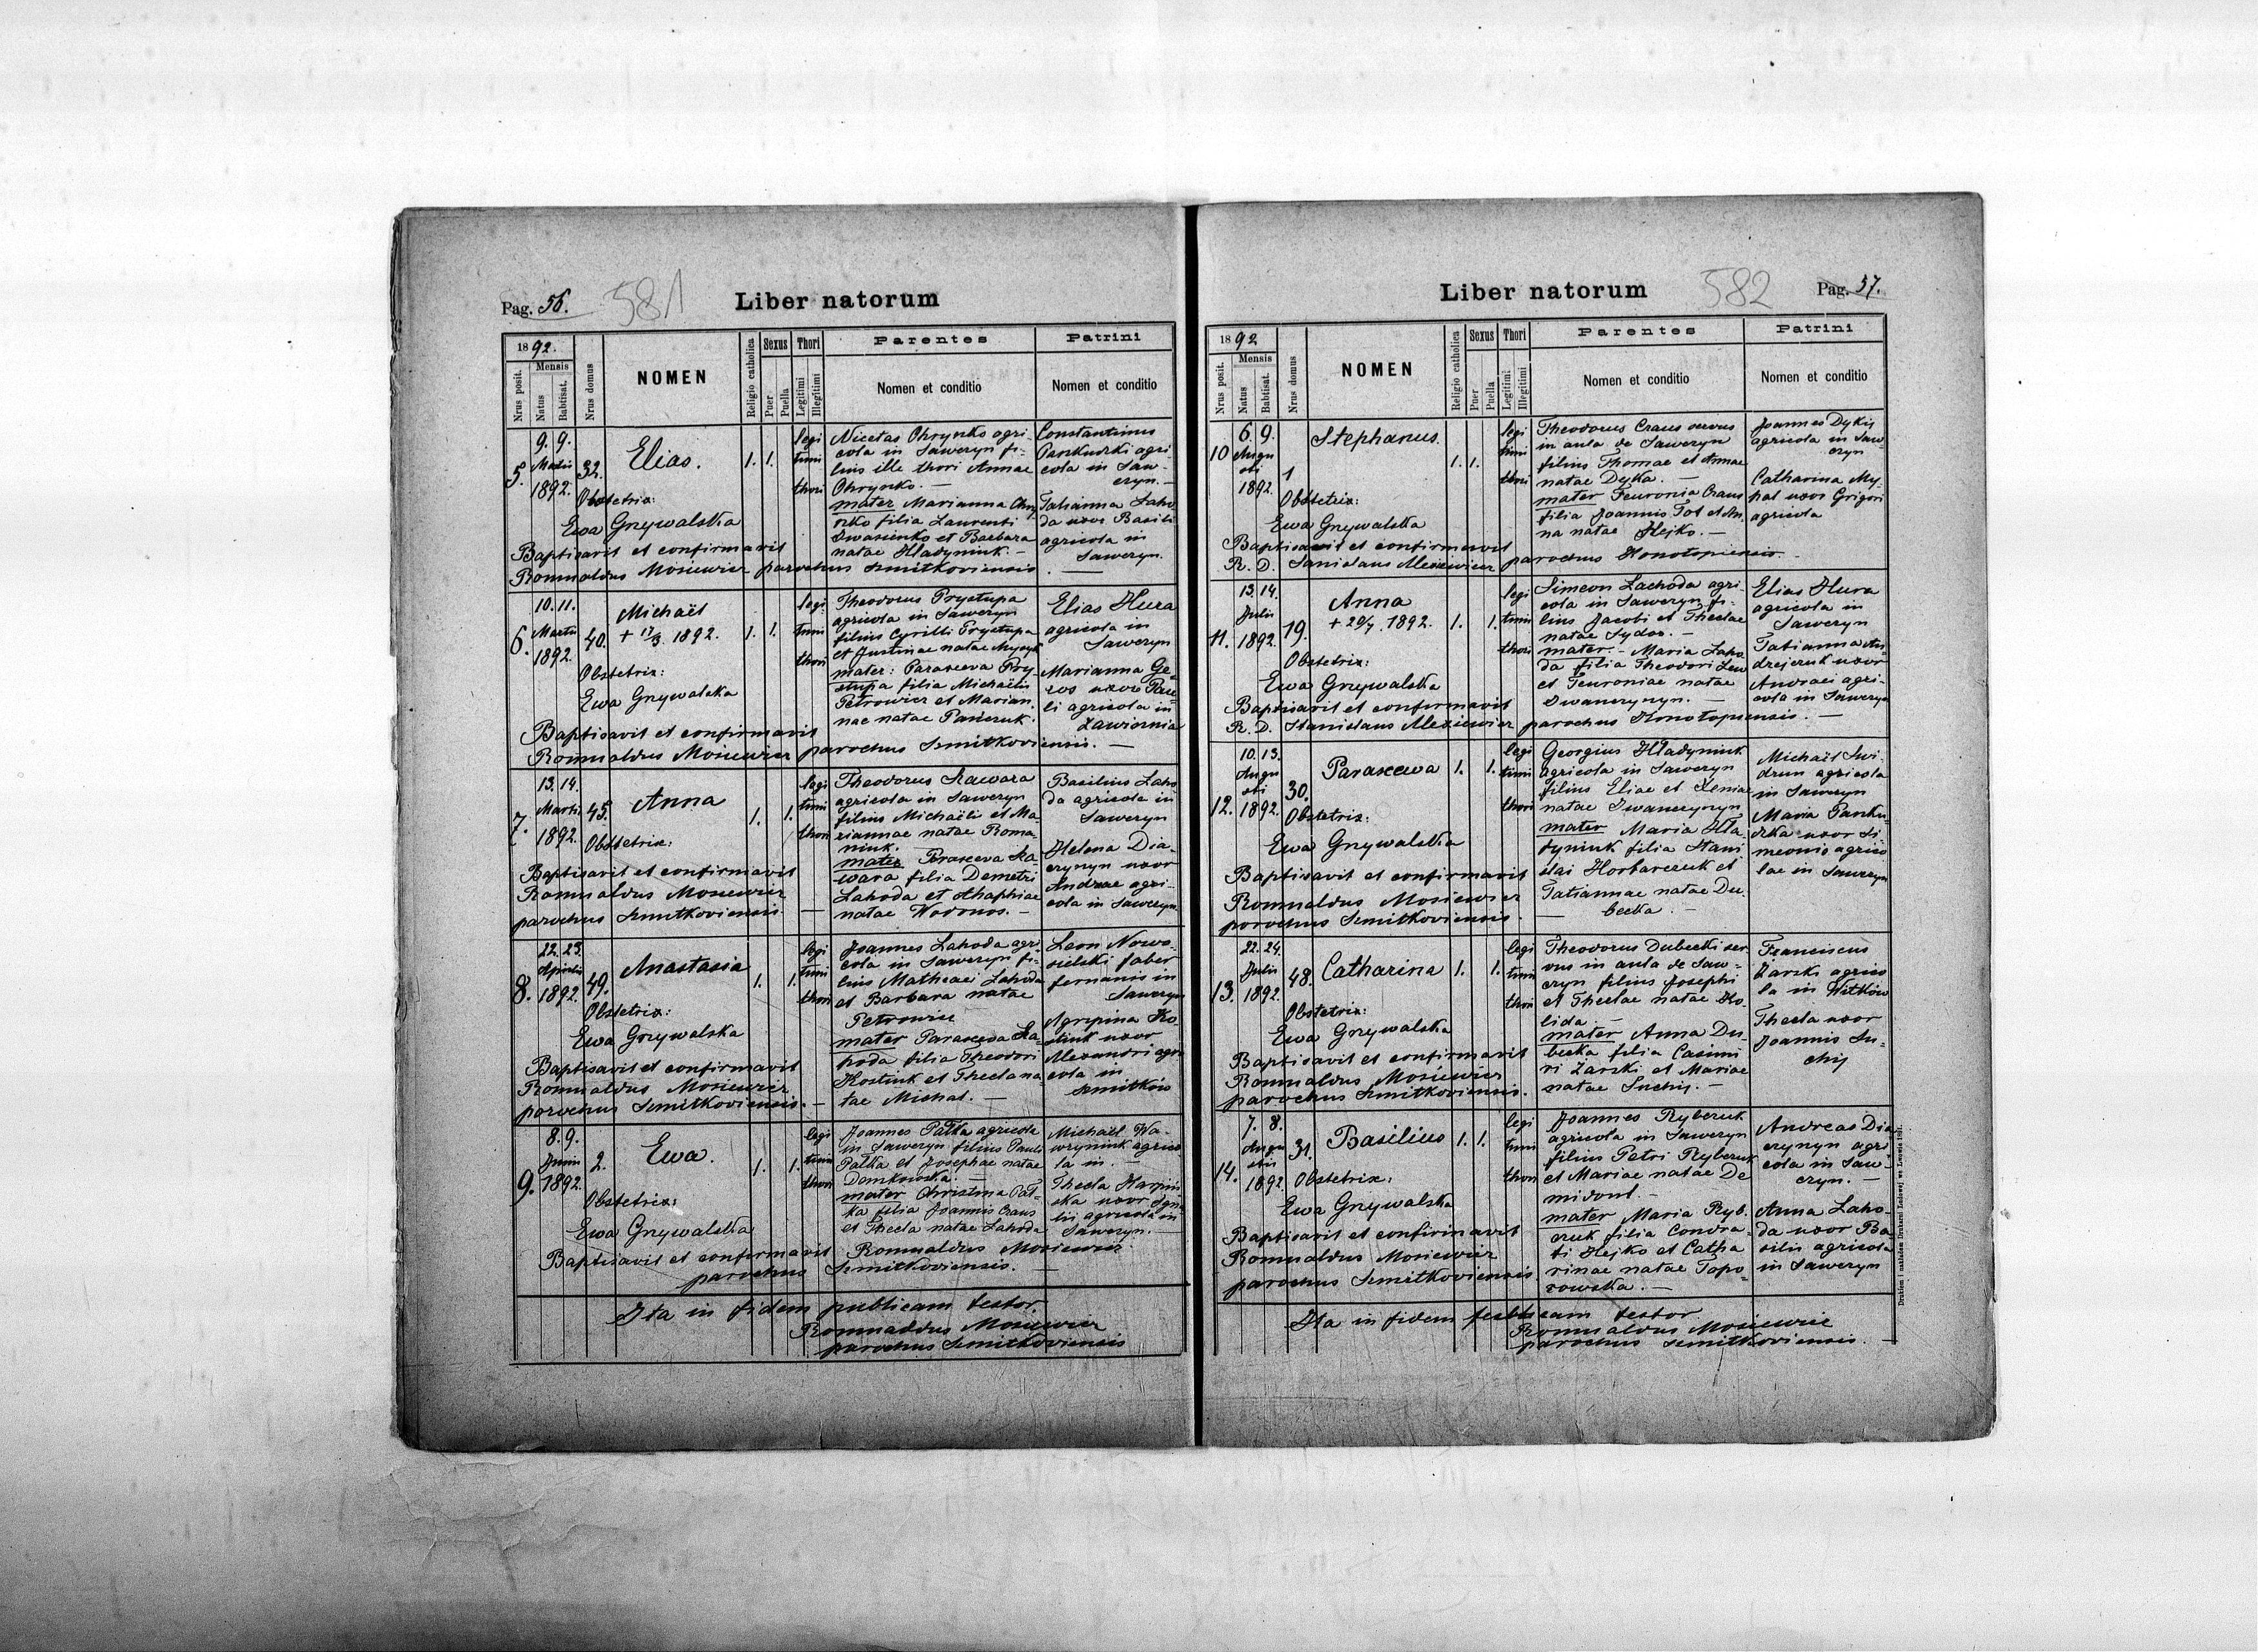 Pag. 56.
581
Liber natorum
1892.
Nrus posit.
Mensis
Natus
Babtisat.
Nrus domus
NOMEN
Religio catholica
Sexus
Puer
Puella
Thori
Legitimi
Illegitimi
Parentes
Nomen et conditio
Patrini
Nomen et conditio
5.
9. 9.
1892.
32.
Elias.
1. 1.
legi
timi
thori
Nicetas Ohrynko agri-
cola in Saweryn fi-
lius ille thori Annae
Ohrynko. —
mater Marianna Ohry
filia Laurenti
Iwasienko et Barbara
natae Hladyniuk. —
Constantinus
Parkudzki agri-
cola in Saw-
eryn. —
Tatianna Laho
da uxor Basili
agricola in
Saweryn.
Obstetrix:
Ewa Grzywalska
Baptisavit et confirmavit
Romualdus Mosiewicz parochus Szmitkoviensis
6.
10. 11.
Martii
1892.
40.
Michaël
+ 17/3 1892.
1. 1.
legi
timi
thori
Theodorus Prystupa
agricola in Saweryn
filius Cyrilli Prystupa
et Justinae natae
mater: Parasceva Pry-
stupa filia Michaëlis
Petrowicz et Marian.
nae natae
Elias Hura
agricola in
Saweryn
Marianna Ge-
agricola in
Zawisznia
Obstetrix:
Ewa Grzywalska
Baptisavit et confirmavit
Romualdus Mosiewicz parochus Szmitkoviensis. —
7.
13. 14.
Martii
1892.
45.
Anna
1. 1.
legi
timi
thori
Theodorus Kawara
agricola in Saweryn
filius Michaëli et Ma-
riannae natae Roma-
niuk.
mater Parasceva Ka
wara filia Demetri
Lahoda et Ahaphiae
natae Wodonos. —
Basilius Laho
da agricola in
Saweryn
Helena Dia-
czynyn uxor
Andreae agri-
cola in Saweryn
Obstetrix:
Baptisavit et confirmavit
Romualdus Mosiewicz
parochus Szmitkoviensis.
8.
22. 23.
Aprilis
1892.
49.
Anastasia
1. 1.
legi
timi
thori
Joannes Lahoda agri-
cola in Saweryn fi-
lius Matheaei Lahoda
et Barbara natae
Petrowicz
mater Parasceva La-
hoda filia Theodori
Kostiuk et Thecla na
tae Michal. —
Leon Nowo-
sielski faber
in
Saweryn
Agripina Ko-
stiuk uxor
Alexandri agri
cola in
Szmitków
Obstetrix:
Ewa Grzywalska
Baptisavit et confirmavit
Romualdus Mosiewicz
parochus Szmitkoviensis. —
9.
8. 9.
Junii
1892.
2.
Ewa.
1. 1.
legi
timi
thori
Joannes Palka agricola
in Saweryn filius Pauli
Palka et Josephae natae
Domkowska. —
mater Christina Pal-
ka filia Joannis Craus
et Thecla natae Lahoda
Michaël Wa-
wryniuk agrico
la in. —
Thecla
ska uxor
agricola in
Saweryn. —
Obstetrix:
Ewa Grzywalska
Baptisavit et confirmavit Romualdus Mosiewicz
parochus Szmitkoviensis. —
Ita in fidem publicam testor.
Romualdus Mosiewicz
parochus Szmitkoviensis
Liber natorum
582
Pag. 57.
1892
Nrus posit.
Mensis
Natus
Babtisat.
Nrus domus
NOMEN
Religio catholica
Sexus
Puer
Puella
Thori
Legitimi
Illegitimi
Parentes
Nomen et conditio
Patrini
Nomen et conditio
10
6. 9.
Augu
sti
1892.
1
Stephanus.
1. 1.
legi
timi
thori
Theodorus Craus servus
in aula de Saweryn
filius Thomae et Annae
natae Dyka. —
mater Feuronia Craus
filia Joannis Tot et An.
na natae Hejko. —
Joannes Dykij
agricola in Saw-
eryn
Catharina My-
hal uxor Grigori
agricola
Obstetrix:
Ewa Grzywalska
Baptisavit et confirmavit
R. D. Stanislaus Alexiewicz parochus Konotopiensis. —
11.
13. 14.
Julii
1892
19.
Anna
+ 29/7. 1892.
1. 1.
legi
timi
thori
Simeon Lachoda agri-
cola in Saweryn fi-
lius Jacobi et Theclae
natae Sydor. —
mater. — Maria Laho
da filia Theodori
et Feuroniae natae
Iwanczynyn. —
Elias Hura
agricola in
Saweryn
Tatianna An-
drzejczuk uxor
Andreaei agri-
cola in Saweryn
Obstetrix:
Ewa Grzywalska
Baptisavit et confirmavit
R. D. Stanislaus Alexiewicz parochus Konotopiensis. —
12.
10. 13.
Augu
sti
1892.
30.
Parascewa
1. 1.
legi
timi
thori
Georgius Hladyniuk
agricola in Saweryn
filius Eliae et Xeniae
natae Iwanczynyn
mater Maria Hla-
dyniuk filia Stani
slai Horbarczuk et
Tatiannae natae Du-
becka. —
Michaël Swi-
drun agricola
in Saweryn
Maria Parku-
dzka uxor Si
meonis agrico
lae in Saweryn
Obstetrix:
Ewa Grzywalska
Baptisavit et confirmavit
Romualdus Mosiewicz
parochus Szmitkoviensis.
13.
22. 24.
Julii
1892.
48.
Catharina
1. 1.
legi
timi
thori
Theodorus Dubecki ser
vus in aula de Saw-
eryn filius Josephi
et Theclae natae Ho-
lida. —
mater Anna Du-
becka filia Casimi
ri Zarski et Mariae
natae Suchij. —
Franciscus
Zarski agrico
la in Witków
Thecla uxor
Joannis Su-
chij
Obstetrix:
Ewa Grzywalska
Baptisavit et confirmavit
Romualdus Mosiewicz
parochus Szmitkoviensis.
14.
7. 8.
Augu
sti
1892
31.
Basilius
1. 1.
legi
timi
thori
Joannes Ryberuk
agricola in Saweryn
filius Petri Ryberuk
et Mariae natae De
midont. —
mater Maria Ryb.
eruk filia Condra-
ti Hejko et Catha
rinae natae Topo-
rowska. —
Andreas Dia
czynyn agri
cola in Saw-
eryn. —
Anna Laho-
da uxor Ba
silii agricola
in Saweryn
Obstetrix:
Ewa Grzywalska
Baptisavit et confirmavit
Romualdus Mosiewicz
parochus Szmitkoviensis
Ita in fidem testor
Romualdus Mosiewicz
parochus Szmitkoviensis.
Drukiem i nakładem Drukarni Ludowej we Lwowie